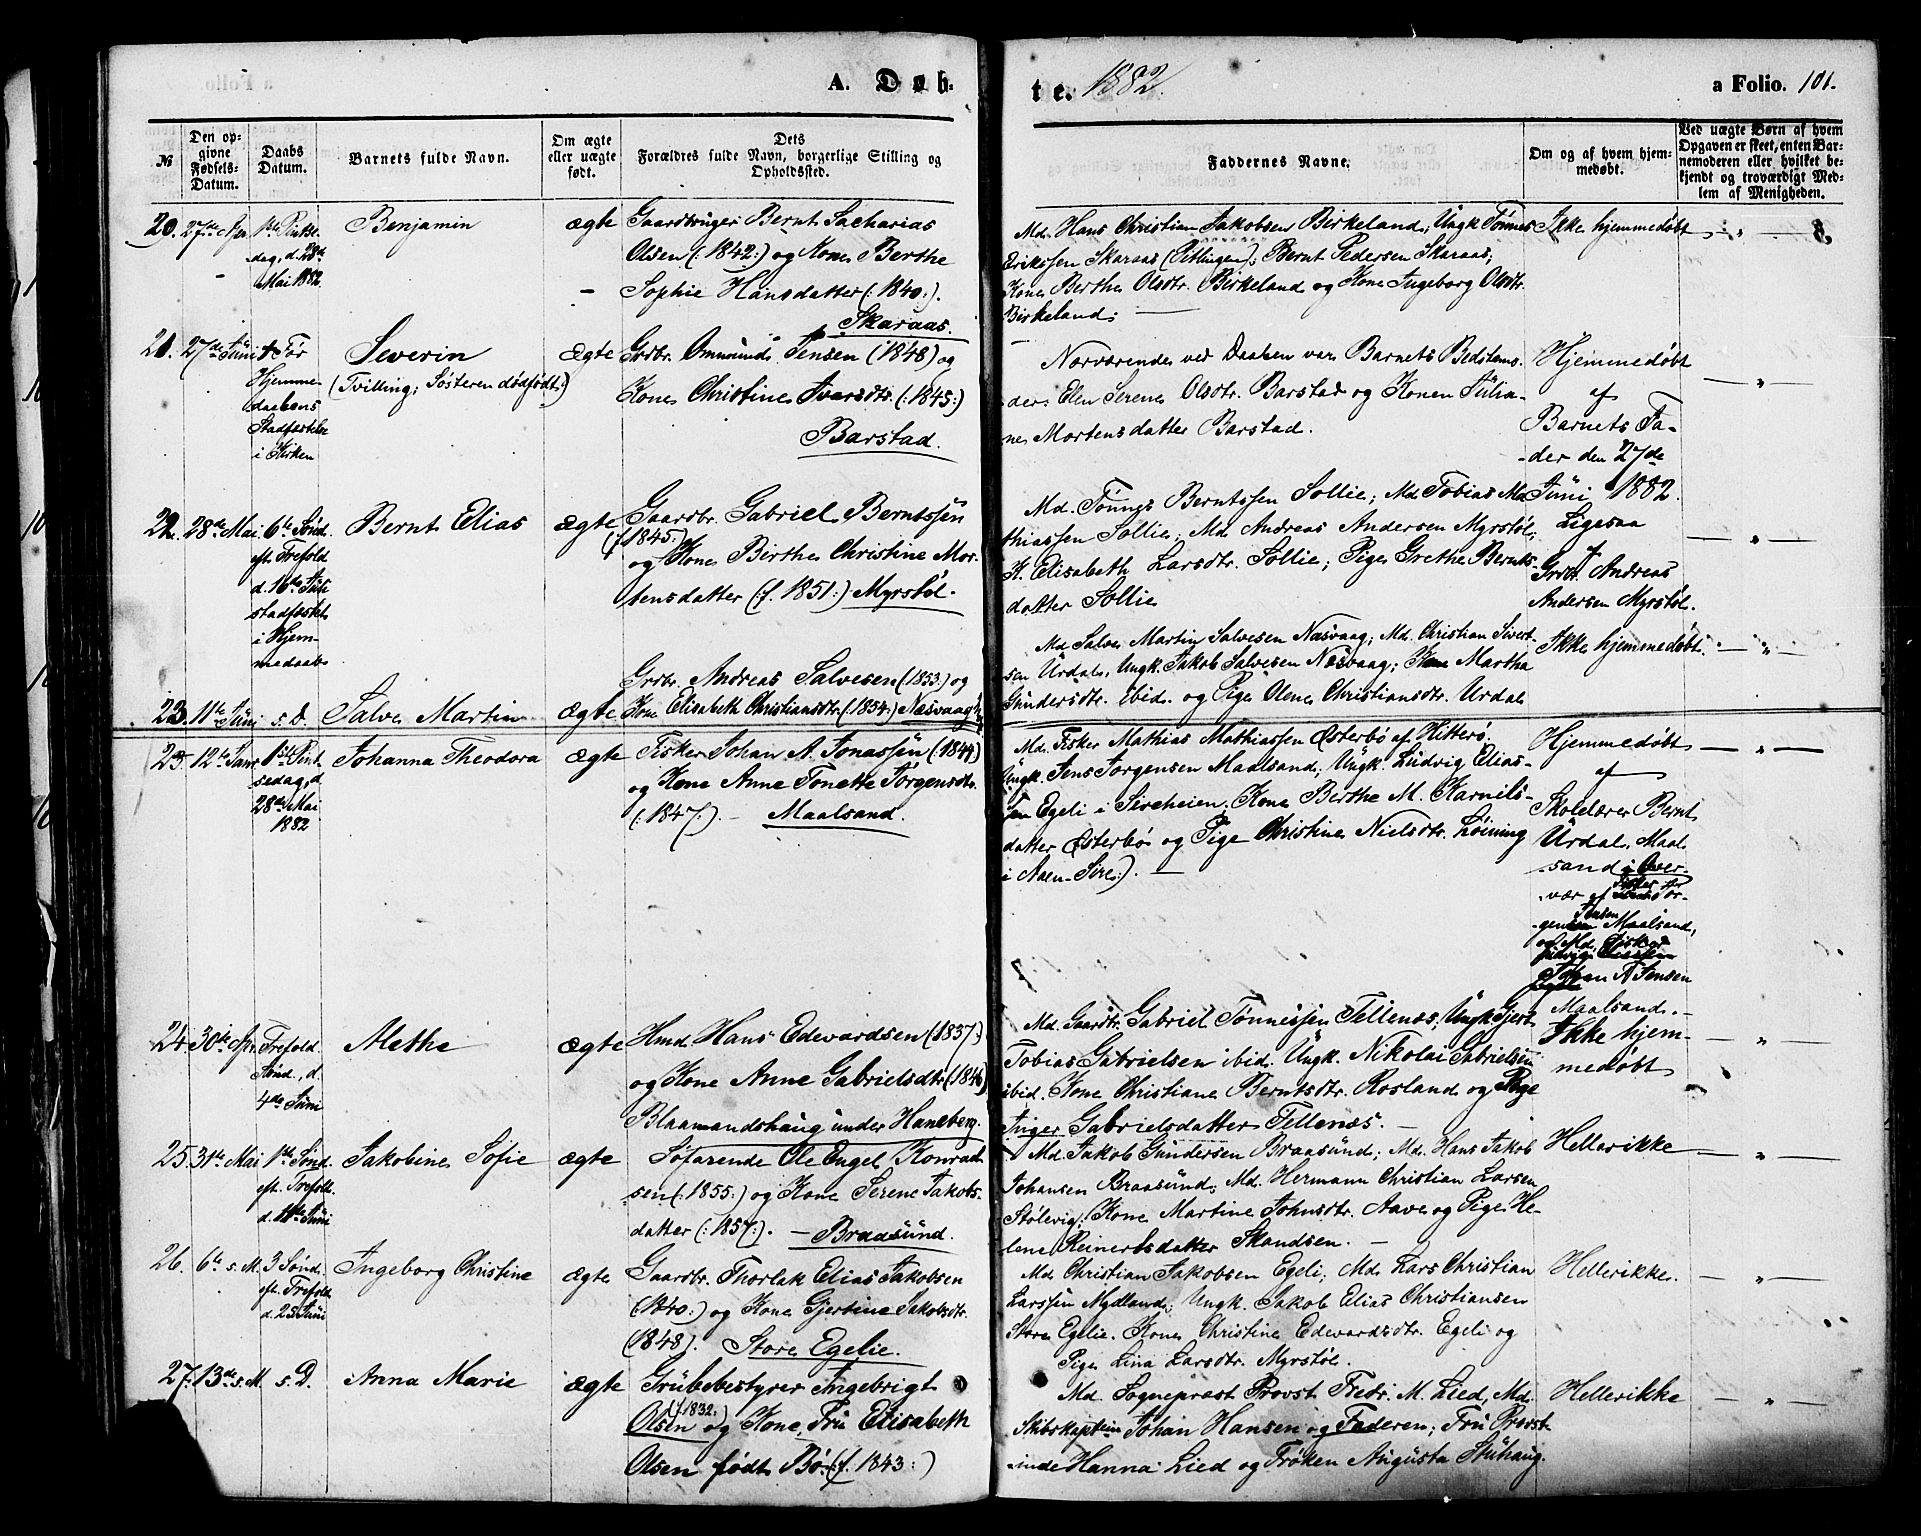 A. Døb-
te. 1882.
a Folio. 101.
№
Den op-
givne
Fødsels-
Datum.
Daabs
Datum.
Barnets fulde Navn.
Om ægte
eller uægte
født.
Dets
Forældres fulde Navn, borgerlige Stilling og
Opholdssted.
Faddernes Navne.
Om og af hvem hjem-
medøbt.
Ved uægte Børn af hvem
Opgaven er skeet, enten Bar-
nemoderen eller hvilket be-
kjendt og troværdigt Med-
lem af Menigheden.
20. 27de Apr.
1ste Pintse
dag, d. 28de
Mai 1882.
Benjamin
ægte
Gaardbruger Bernt Sacharias
Olsen (: 1842:) og Kone Berthe
Sophie Hansdatter (: 1840:).
Skaraas.
Md. Hans Christian Jakobsen Birkeland; Ungk Tönnes
Erikssen Skaraas (Vitlingen); Bernt Pedersen Skaraas;
Kone Berthe Olsdtr. Birkeland og Kone Ingeborg Olsdtr.
Birkeland;
Ikke hjemmedøbt
21. 27de Juni
För
Hjemme-
daabens
Stadfæstelse
i Kirken
Severin
(Tvilling; Søsteren dødfødt:)
ægte
Grdbr. Omund Jensen (1848) og
Kone Christine Ivarsdtr. (: 1845:)
Barstad.
Nærværende ved Daaben var Barnets Bedstemo-
der Elen Serene Olsdtr. Barstad og Konen Julia-
ne Mortensdatter Barstad.
Hjemmedøbt
af
Barnets Fa-
der den 27de
Juni 1882.
22. 28de Mai
6te Sönd.
eft. Trefold
d. 16de Juli
stadfæstet
i Hjem-
medaab
Bernt Elias
ægte
Gaardbr. Gabriel Berntssön
(f. 1845:)
og Kone Birthe Christine Mor-
tensdatter (: f. 1851:) Myrstøl.
Md. Tönnes Berntssen Sollie; Md Tobias Ma-
thiassen Sollie; Md Andreas Andersen Myrstøl;
K. Elisabeth Larsdtr. Sollie; Pige Grethe Bernts-
datter Sollie
Ligesaa
af
Grdbr. Andreas
Andersen Myrstøl.
23. 11te Juni s. D. Salve Martin
ægte
Grdbr. Andreas Salvesen (1853:) og
Kone Elisabeth Christiansdtr. (: 1854:) Næsvaag
Md Salve Martin Salvesen Næsvaag; Md. Christian Sivert-
sen Urdal, Ungk. Jakob Salvesen Næsvaag; Kone Martha
Gundersdtr. ibid. og Pige Olene Christiansdtr. Urdal
Ikke hjemmedøbt.
23. 12te Janr.
1ste Pint-
sedag, d.
28de Mai
1882
Johanna Theodora
ægte
Fisker Johan A. Jonassön (1844)
og Kone Anne Tonette Jörgensdtr.
(: 1847:). — Maalsand.
Md. Fisker Mathias Mathiassen Østerbö af Hitterö.
Ungk. Jens Jörgensen Maalsand; Ungk. Ludvig Elias-
sen Egeli i Sireheien; Kone Berthe M. Karnils-
datter Østerbö og Pige Christine Nielsdtr. Löining
i Aaen-Sire:). —
Hjemmedøbt
af
Skolelærer Bernt
Urdal, Maal
sand i Over-
vær af Fisker Jör-
gen Jensen Maalsand,
og Md. Fisker
Johan A. Jensen
Maalsand. —
24. 30te Apr.
Trefold
Sönd., d.
4de Juni
Alethe
ægte
Hmd. Hans Edevardsen (1837:)
og Kone Anne Gabrielsdtr (1846)
Blaamandshaug under Haneberg.
Md. Gaardbr. Gabriel Tönnessen Tellenes; Ungk. Gjert
Tobias Gabrielsen ibid. Ungk. Nikolai Gabrielsen
ibid. Kone Christiane Berntsdtr. Rosland og Pige
Inger Gabrielsdatter Tellenæs. —
Ikke hjem-
medøbt
25. 31te Mai
1ste Sönd.
eft. Trefold.
d. 11te Juni
Jakobine Sofie
ægte
Söfarende Ole Engel Konrad-
sen (: 1855:) og Kone Serene Jakobs-
datter (: 1857:). — Braasund.
Md Jakob Gundersen Braasund; Md. Hans Jakob
Johansen Braasund; Md. Hermann Christian Larsen
Stölevig; Kone Martine Johnsdtr. Aave og Pige He-
lene Reinertsdatter Skandsen. —
Hellerikke
26. 6te s. M.
3 Sönd.
eft. Trefold.
d. 25 Juni
Ingeborg Christine
ægte
Gaardbr. Thorlak Elias Jakobsen
(1840:) og Kone Gjertine Jakobsdtr.
(1848). Store Egelie.
Md. Christian Jakobsen Egeli; Md. Lars Christian
Larssen Mydland; Ungk. Jakob Elias Christiansen
Store Egelie. Kone Christine Edevardsdtr. Egeli og
Pige Lina Larsdtr. Myrstøl.
Hellerikke.
27. 13de s. M. s. D. Anna Marie
ægte
Grubebestyrer Ingebrigt
Olsen (f. 1832:) og Kone, Fru Elisabeth
Olsen født Bö. (f. 1843:)
Md. Sogneprest Provst Fredr. M. Lied, Md.
Skibskaptein Johan Hansen og Faderen; Fru Provst-
inde Hanna Lied og Fröken Augusta Stuhaug.
Hellerikke